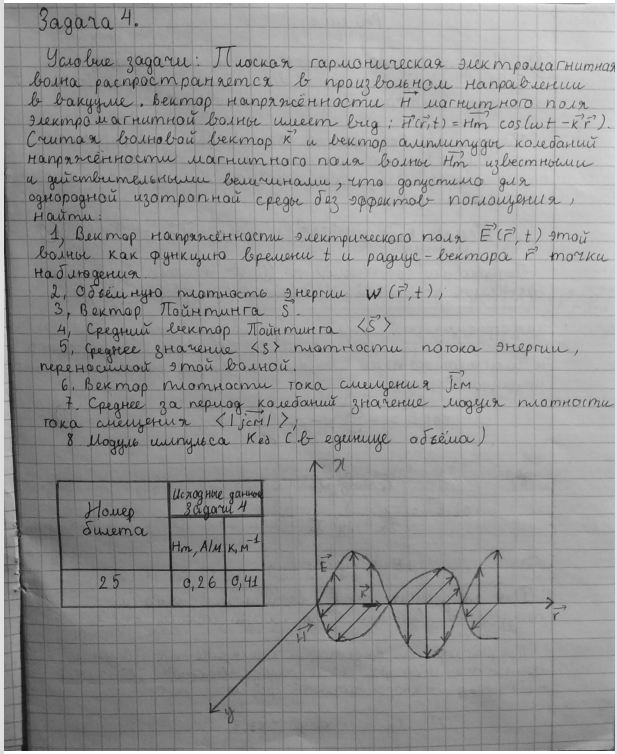 Задача 4.
Условие задачи: Плоская гармоническая электромагнитная
волна распространяется в произвольном направлении
в вакууме. Вектор напряжённости H⃗ магнитного поля
электромагнитной волны имеет вид: H⃗(r⃗,t) = H⃗m cos(ωt − k⃗r⃗).
Считая волновой вектор k⃗ и вектор амплитуды колебаний
напряжённости магнитного поля волны H⃗m известными
и действительными величинами, что допустимо для
однородной изотропной среды без эффектов поглощения,
найти:
1, Вектор напряжённости электрического поля E⃗(r⃗, t) этой
волны как функцию времени t и радиус-вектора r⃗ точки
наблюдения.
2, Объёмную плотность энергии w(r⃗, t);
3, Вектор Пойнтинга S⃗.
4, Средний вектор Пойнтинга <S⃗>
5, Среднее значение <S> плотности потока энергии,
переносимой этой волной.
6. Вектор плотности тока смещения j⃗см
7. Среднее за период колебаний значение модуля плотности
тока смещения <|j⃗см|>;
8 Модуль импульса Kед (в единице объёма)
Номер
билета
Исходные данные
задачи 4
Hm, А/м
k, м⁻¹
25
0,26
0,41
x
E⃗
k⃗
H⃗
r⃗
y